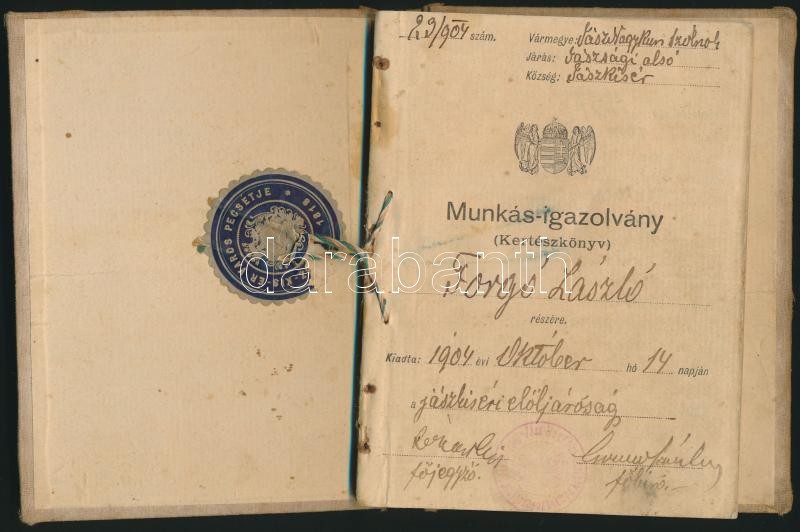 23/904 szám.
Vármegye: Jász Nagykun Szolnok
Járás: Jászsági alsó
Község: Jászkisér
Munkás-igazolvány
(Kertészkönyv)
Forgó László
részére.
Kiadta: 1904 évi Október hó 14 napján
a jászkiséri elöljáróság
főjegyző.
főbiró.
VÁROS PECSÉTJE * 1818
KIS-ÉR
darabanth.com